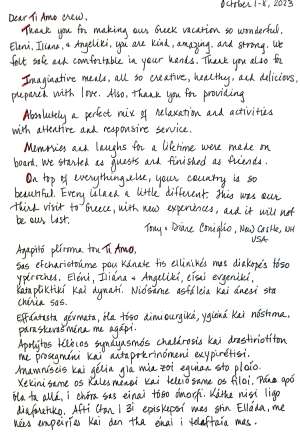 October 1-8, 2023
Dear Ti Amo crew,
Thank you for making our Greek vacation so wonderful.
Eleni, Iliana, & Angeliki, you are kind, amazing, and strong. We
felt safe and comfortable in your hands. Thank you also for
Imaginative meals, all so creative, healthy, and delicious,
prepared with love. Also, thank you for providing
Absolutely a perfect mix of relaxation and activities
with attentive and responsive service.
Memories and laughs for a lifetime were made on
board. We started as guests and finished as friends.
On top of everything else, your country is so
beautiful. Every island a little different. This was our
third visit to Greece, with new experiences, and it will not
be our last.
Tony & Diane Coniglio, New Castle, NH
USA
Agapitó plíroma tou Ti Amo,
Sas efcharistoúme pou kánate tis ellinikés mas diakopés tóso
ypéroches. Eléni, Iliána & Angelikí, eísai evgenikí,
katapliktikí kai dynatí. Nióthame asfáleia kai ánesi sta
chéria sas.
Effántasta gévmata, óla tóso dimiourgiká, ygieiná kai nóstima,
paraskevasména me agápi.
Apolýtos téleios syndyasmós chalárosis kai drastiriotíton
me prosegméni kai antapokrinómeni exypirétisi.
Anamníseis kai gélia gia mia zoí égínan sto ploío.
Xekinísame os kalesménoi kai teleiósame os fíloi. Páno apó
óla ta allá, i chóra sas eínai tóso ómorfi. Káthe nisí lígo
diaforetikó. Aftí ítan i 3i episkepsí mas stin Elláda, me
nées empeiríes kai den tha eínai i teleftaía mas.